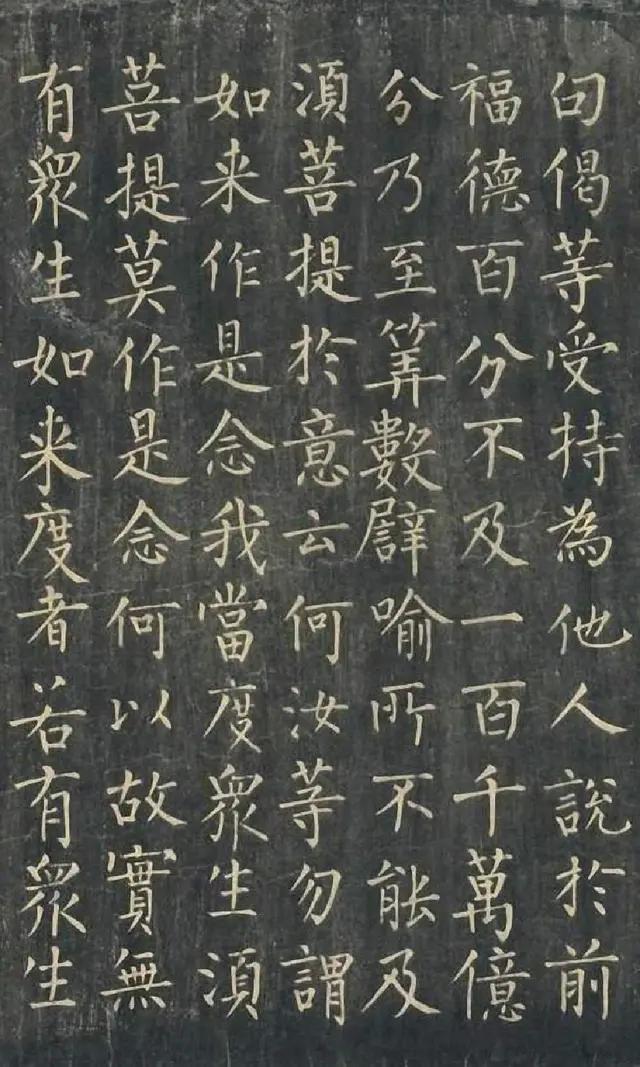 句偈等受持為他人說於前
福德百分不及一百千萬億
分乃至筭數譬喻所不能及
湏菩提於意云何汝等勿謂
如来作是念我當度眾生湏
菩提莫作是念何以故實無
有眾生如来度者若有眾生